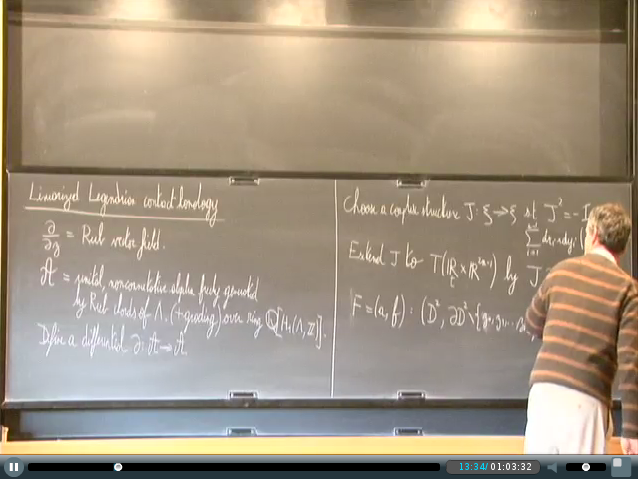 Linearized Legendrian contact homology
∂/∂z = Reeb vector field.
A = unital, noncommutative algebra freely generated
by Reeb chords of Λ, (+grading) over ring Q[H₁(Λ,Z)].
Define a differential ∂: A → A
Choose a complex structure J: ξ → ξ st J² = -I
Σ dx_i∧dy_i
Extend J to T(ℝ_t × ℝ²ⁿ⁺¹) by J
F = (a, f) : (D², ∂D² \ {y₀, y₁, ...
13:34/ 01:03:32